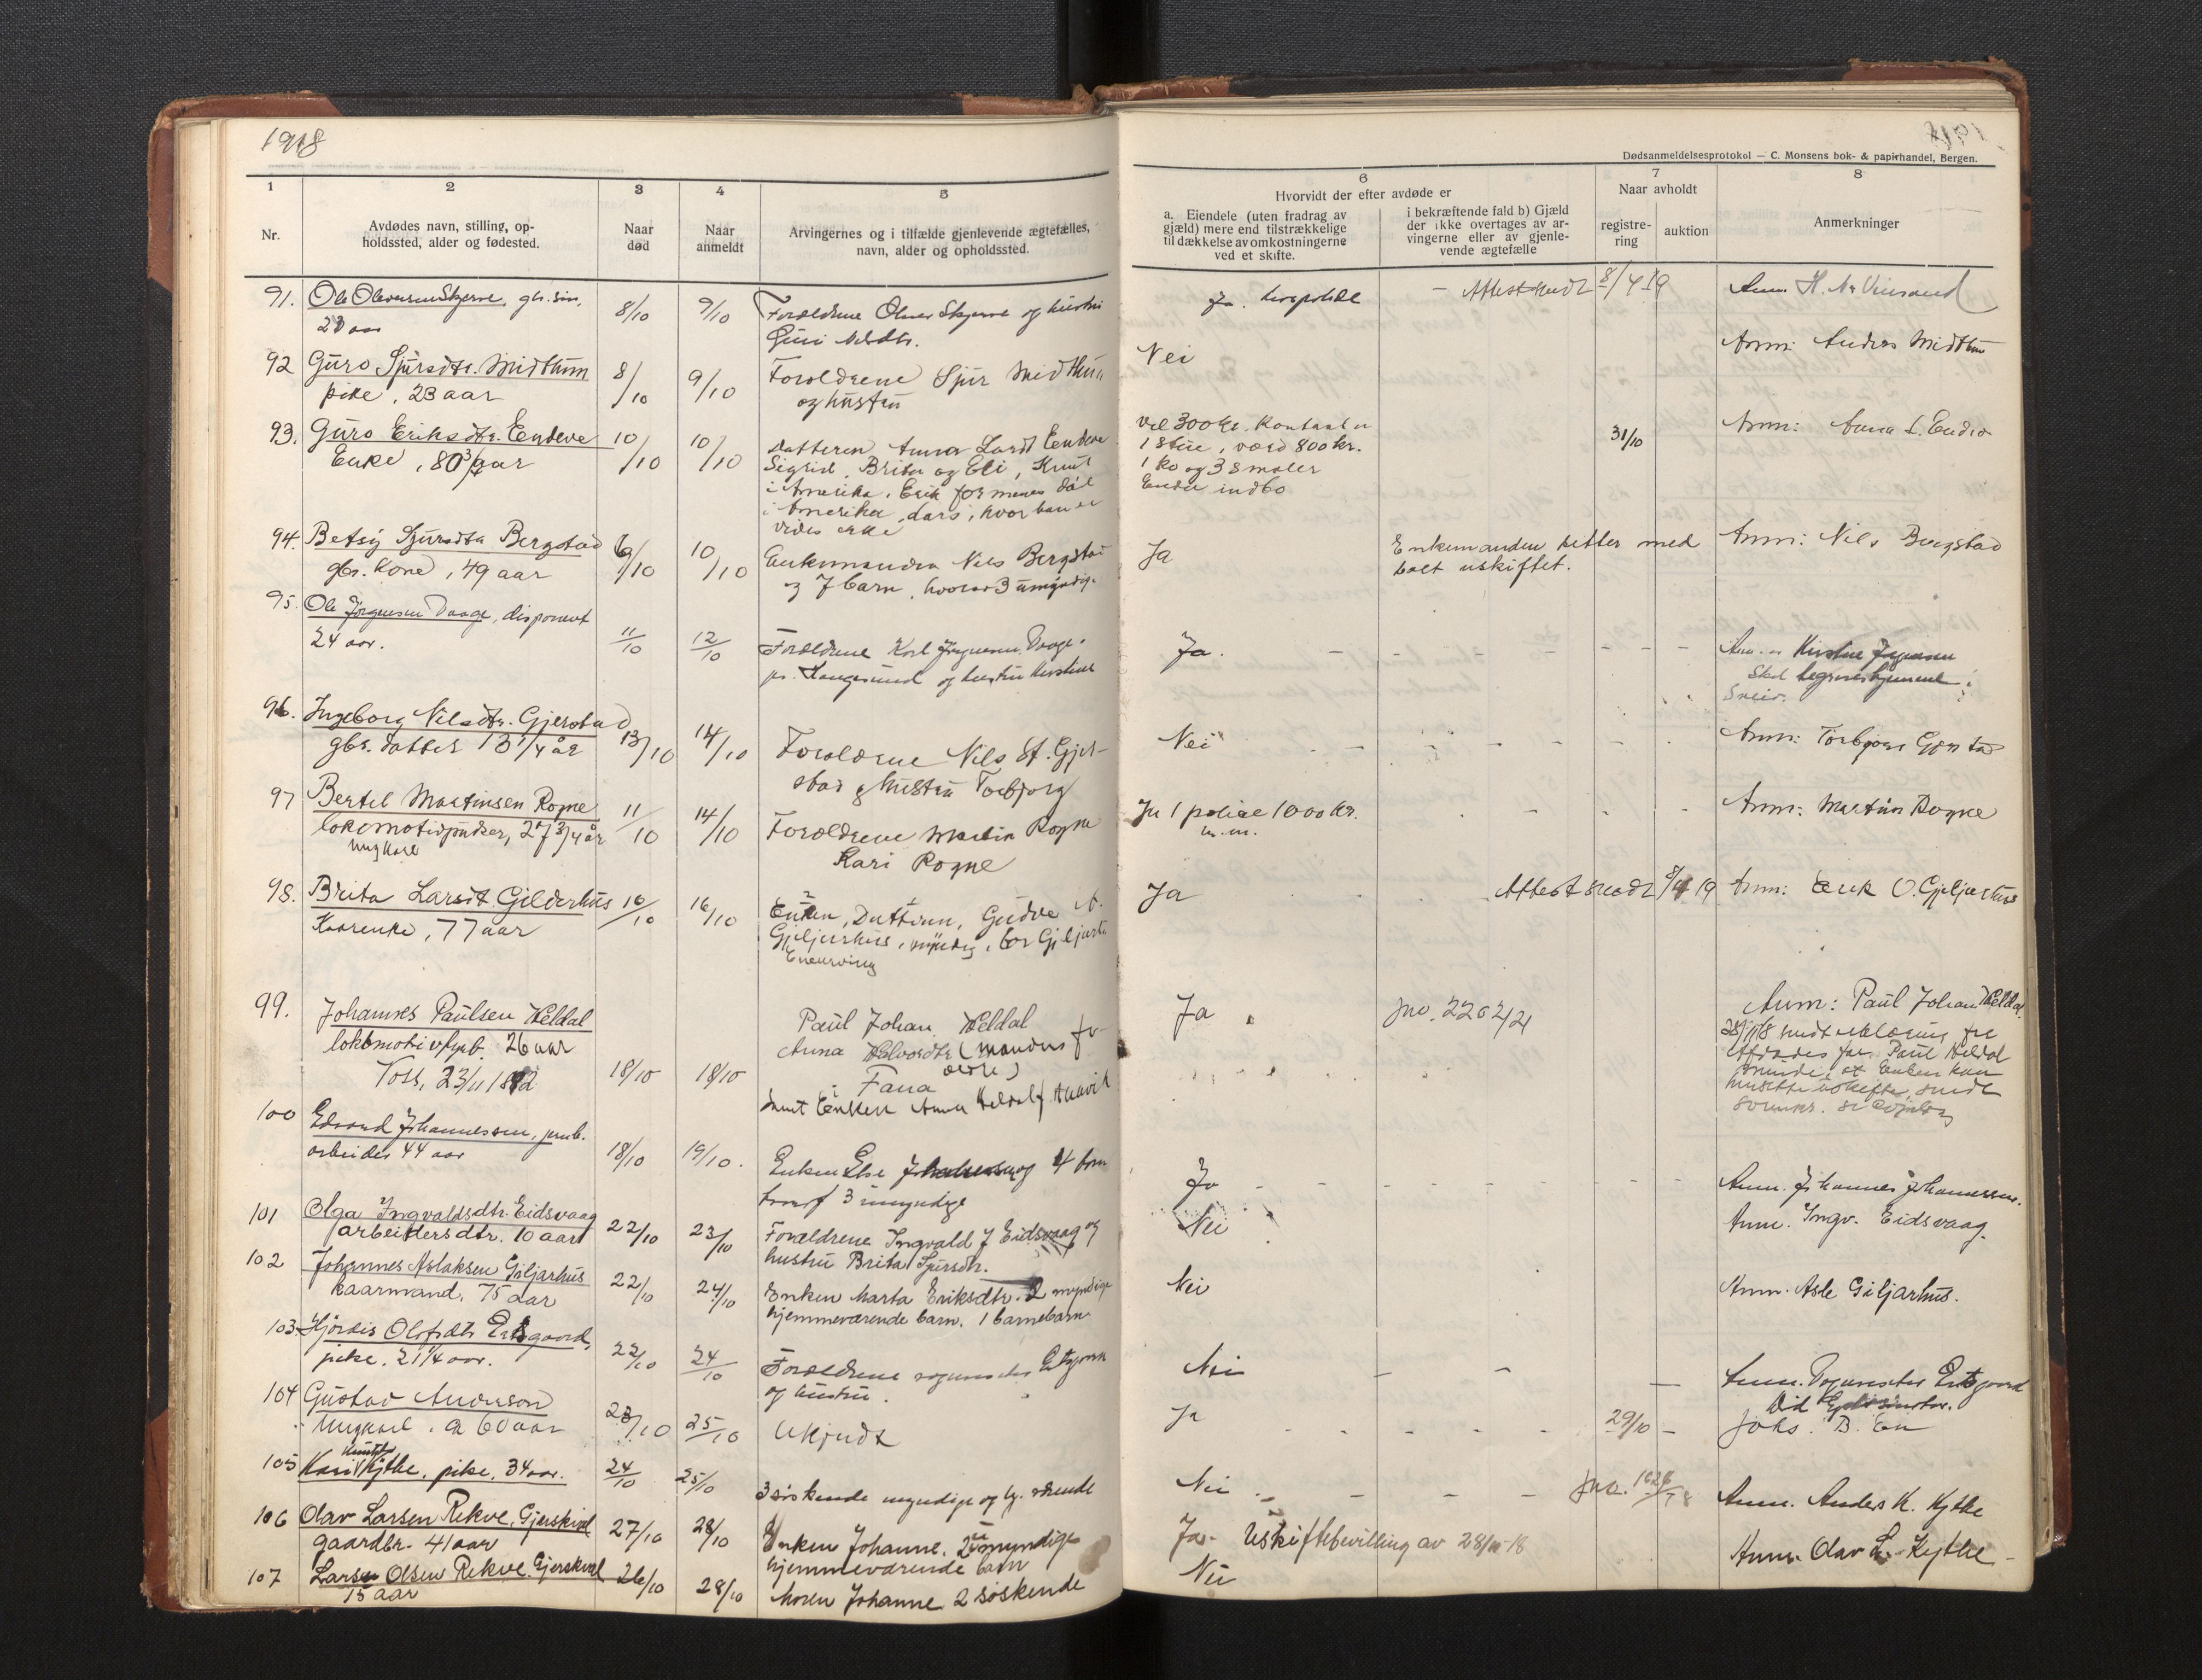 1918
Dødsanmeldelsesprotokol — C. Monsens bok- & papirhandel, Bergen.
1
2
3
4
5
6
7
8
Nr.
Avdødes navn, stilling, op-
holdssted, alder og fødested.
Naar
død
Naar
anmeldt
Arvingernes og i tilfælde gjenlevende ægtefælles,
navn, alder og opholdssted.
Hvorvidt der efter avdøde er
a. Eiendele (uten fradrag av
gjæld) mere end tilstrækkelige
til dækkelse av omkostningerne
ved et skifte.
i bekræftende fald b) Gjæld
der ikke overtages av ar-
vingerne eller av gjenle-
vende ægtefælle
Naar avholdt
registre-
ring
auktion
Anmerkninger
91. Ole Olversen Skjerve, gbr. søn,
8/10 9/10 Forældrene Olver Skjerve og hustru
Guri Nilsdtr.
Ja.
Attest sendt 8/4 19
Anm. H. N.
92 Guro Sjursdtr. Midthun
pike, 23 aar
8/10 9/10 Foroldrene Sjur Midthun
og hustru
Nei
Anm: Anders Midthun
93. Guro Eriksdtr. Eendeve
Enke, 80 3/4 aar
10/10 10/10 datteren Anna Larsd Eendeve
Sigrid, Brita og Eli, Knut
i Amerika, Erik formenes död
i Amerika, Lars, hvor han er
vides ikke
Vel 300 kr. Kontant
1 Stue, værd 800 kr.
1 Ko og 3 Smaler
Endel indbo
31/10
Anm: Anna L. Endeve
94. Betsy Sjursdtr Bergstad
gbr. kone, 49 aar
/10 10/10 Enkemanden Nils Bergstad
og 7 barn, hvorav 3 umyndige
Ja
Enkemanden sitter med
boet uskiftet.
Anm: Nils Bergstad
95. Ole Jørgensen Daage, disponent
24 aar.
11/10 12/10 Forældrene Karl Jørgensen Daage
pr. Haugesund og hustru Kirstine
Ja.
Anm. Kirstine Jørgensen
Skal begraves hjemme
96. Ingeborg Nilsdtr. Gjerstad
gbr. datter 13 1/4 år
13/10 14/10 Foroldrene Nils St. Gjer-
stad og hustru Torbjorg
Nei
Anm: Torbjørg Gjerstad
97 Bertel Martinsen Rogne
lokomotivpudser, 27 3/4 år
ungkarl
11/10 14/10 Foroldrene Martin Rogne
Kari Rogne
Ja 1 police 1000 kr.
m.m.
Anm: Martin Rogne
98. Brita Larsdt. Gilderhus
Kaarenke, 77 aar
16/10 16/10 Enken, Datteren, Gudve A.
Giljarhus, myndig, bor Giljarhus
Enearving
Ja
Attest sendt 8/4 19
Anm: Erik O. Giljarhus
99. Johannes Paulsen Heldal
lokomotivfyrb. 26 aar
Voss, 23/11 1892
18/10 18/10
Paul Johan Heldal
Anna Halvordtr (mandens for-
ældre)
Fana
samt Enken Anna Heldal f
Ja
jno. 2262/21
Anm: Paul Johan Heldal
28/11 18 sendt erklæring fra
Afdødes far Paul Heldal
at Enken kan
hensitte i uskiftet
100 Edvard Johannessen, jernb.
arbeider 44 aar
18/10 19/10. Enken Else Johannessen og 4 barn
hvoraf 3 umyndige
Ja
Anm. Johannes Johannessen.
101 Olga Ingvaldsdtr. Eidsvaag
arbeidersdtr. 10 aar
22/10 23/10 Forældrene Ingvald J Eidsvaag og
hustru Brita Sjursdtr.
Nei
Anm. Ingv. Eidsvaag.
102 Johannes Aslaksen Giljarhus
kaarmand, 75 aar
22/10 24/10 Enken Marta Eriksdtr. 2 myndige
hjemmeværende barn. 1 barnebarn
Nei
Anm. Asle Giljarhus.
103. Hjørdis Olofsdtr
pike. 21 1/4 aar.
22/10 24/10 Forældrene
og hustru.
Nei
Anm.
104 Gustav Anderson
Ungkarl. ca 60 aar
23/10 25/10 Ukjendt
Ja
29/10 —
Johs. B. En
105 Kari Knutsd Kythe, pike, 34 aar.
24/10 25/10 3 søskende myndige og hj. værende
Nei
Anm. Anders K. Kythe
106 Olav Larsen Rekve, Gjerskvol
gaardbr. 41 aar
27/10 28/10 Enken Johanne. 2 umyndige
hjemmeværende barn
Ja. Uskiftebevilling av 28/10-18
Anm. Olav L. Kythe
107 Lars Olsen Rekve. Gjerskvol
15 aar
26/10 28/10 Moren Johanne 2 søskende
Nei